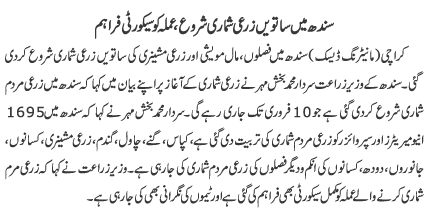 سندھ میں ساتویں زرعی شماری شروع، عملہ کو سیکورٹی فراہم
کراچی (مانیٹرنگ ڈیسک) سندھ میں فصلوں، مال مویشی اور زرعی مشینری کی ساتویں زرعی شماری شروع کردی
گئی۔ سندھ کے وزیر زراعت سردار محمد بخش مہر نے زرعی شماری کے آغاز پر اپنے بیان میں کہا کہ سندھ میں زرعی مردم
شماری شروع کردی گئی ہے جو 10 فروری تک جاری رہے گی۔ سردار محمد بخش مہر نے کہا کہ سندھ میں 1695
انیومیریٹرز اور سپروائزر کو زرعی مردم شماری کی تربیت دی گئی ہے، کپاس، گنے، چاول، گندم، زرعی مشینری، کسانوں،
جانوروں، دودھ، کسانوں کی انکم و دیگر فصلوں کی زرعی مردم شماری کی جارہی ہے۔ وزیر زراعت نے کہا کہ زرعی مرم
شماری کرنے والے عملہ کو مکمل سیکورٹی بھی فراہم کی گئی ہے اور ٹیموں کی نگرانی بھی کی جارہی ہے۔